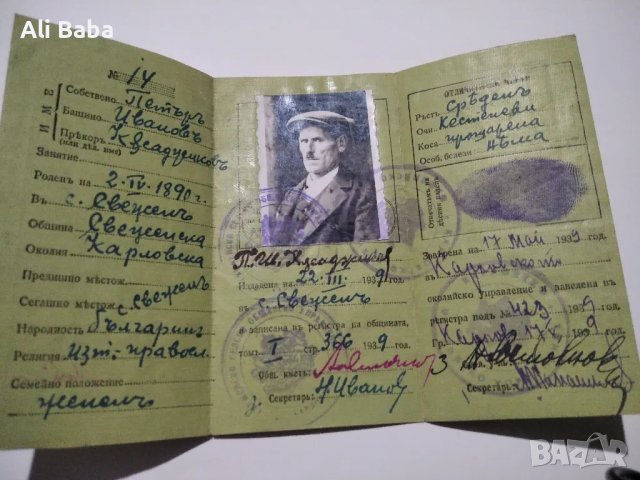 Ali Baba
№ 14
ИМЕ
Собствено Петъръ
Башино Ивановъ
Прѣкоръ
(или дѣд. име)
Занятие
Роденъ на 2.IV.1890 г.
въ с. Свеженъ
Община Свеженска
Околия Карловска
Предишно мѣстож.
Сегашно мѣстож. с. Свеженъ
Народность Българинъ
Религия изт.-правосл.
Семейно положение
жененъ
Издадена на 22.III. 1939 г.
въ с. Свеженъ
и записана въ регистра на общината,
томъ I стр. 366 1939
Общ. кметъ:
Секретарь: Н Иванов
Ръстъ Срѣденъ
Очи Кестеневи
Коса прошарена
Особ. белези нѣма
Отпечатъкъ на
Заверена на 17 Май 1939 год.
въ Карловското
околийско управление и заведена въ
регистра подъ № 423
Гр. Карлово 17.V. 1939 год.
Секретарь:
BAZAR
bazar.bg